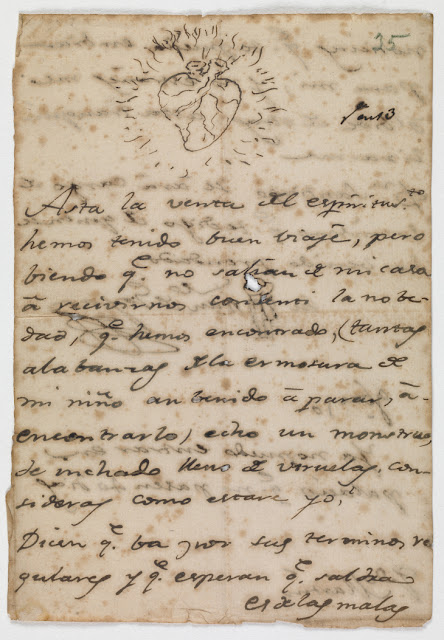 25
Asta la venta del espiritusto
hemos tenido buen viaje, pero
biendo qe no salian de mi casa
â recivirnos consenti la nobe-
dad, qe hemos encontrado, (tantas
alabanzas de la ermosura de
mi niño an benido â parar, â-
encontrarlo, echo un monstruo,
de inchado lleno de viruelas. con-
sideras como estare yo,
Dicen qe. ba por sus terminos re
gulares y qe. esperan qe. saldra
es de las malas